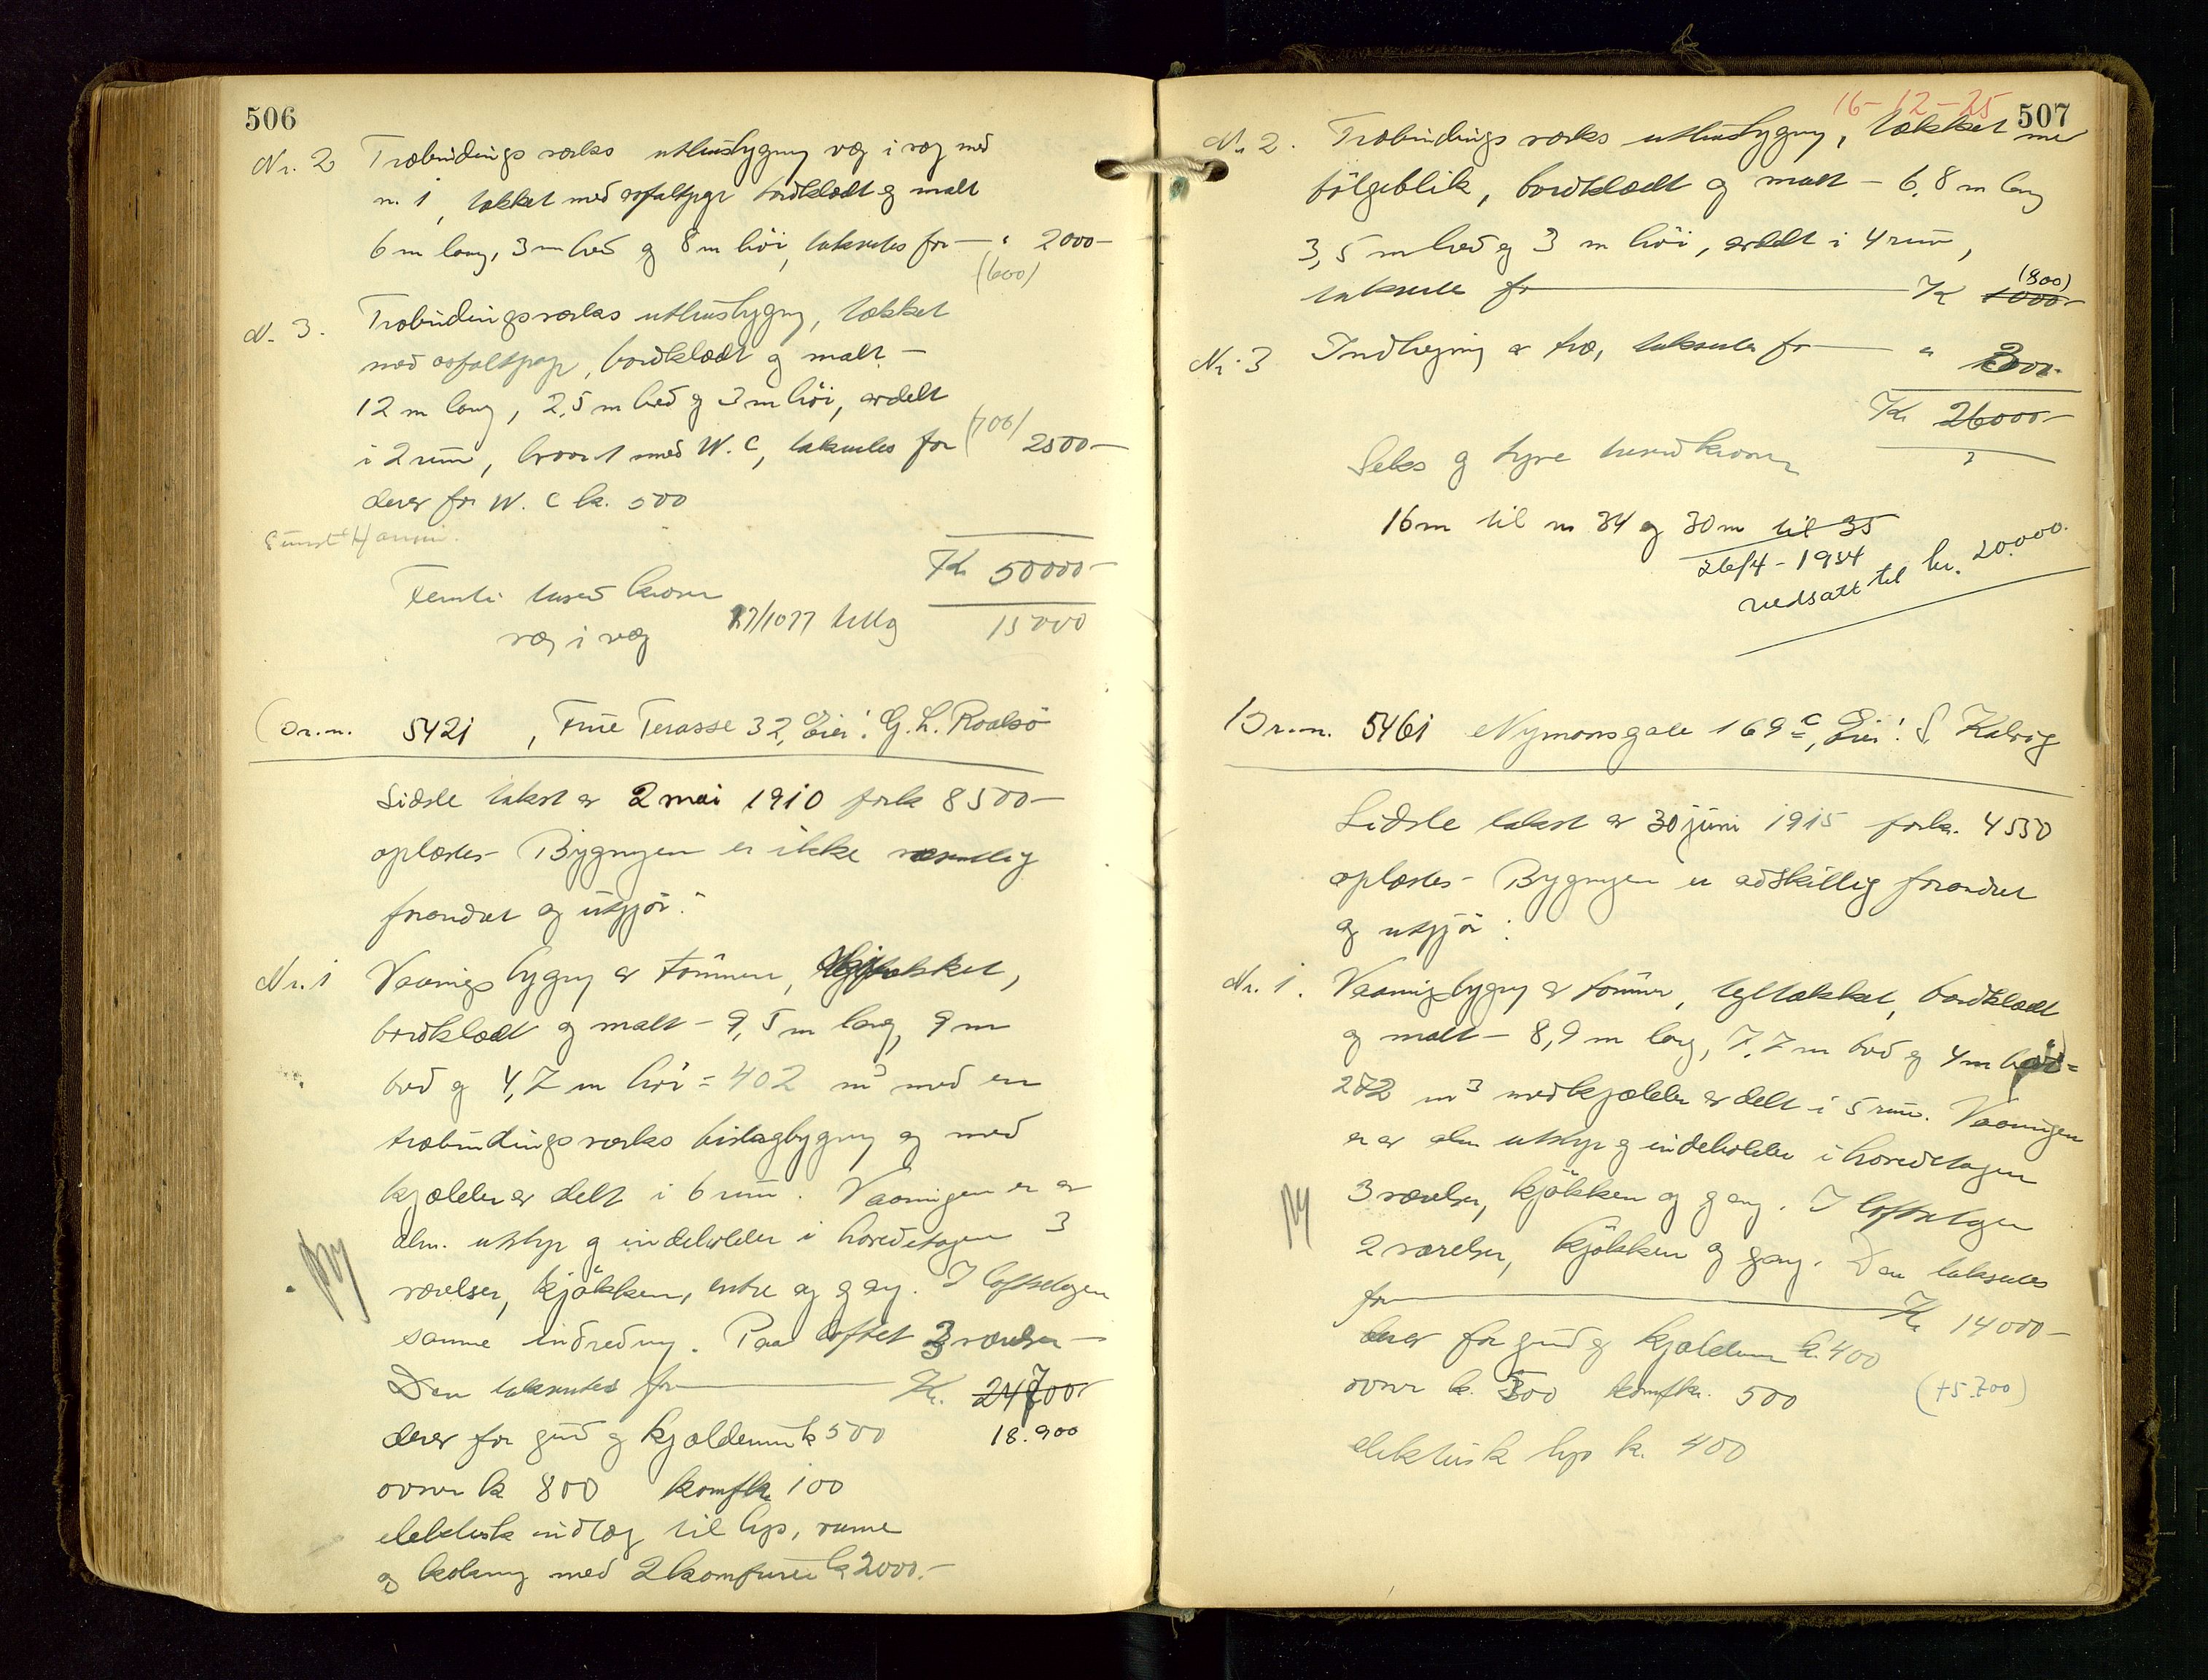 506
Nr. 2 Træbindingsverks uthusbygning væg i væg med
nr. 1, tækket med asfaltpap bordklædt og malt
6 m lang, 3 m bred og 8 m høi, takseres for — " 2000 —
(600)
Nr. 3. Træbindingsverks uthusbygning, tækket
med asfaltpap, bordklædt og malt —
12 m lang, 2,5 m bred og 3 m høi, avdelt
i 2 rum, hvorav 1 med W.C, takseres for (700) 2500 —
derav for W.C kr. 500
Kr 50000 —
Femti tusend kroner
væg i væg 17/10 77 tillæg 15000
Br.n. 5421, Frue Terasse 32, Eier: G. L. Roalsö
Sidste takst av 2 mai 1910 for kr 8500 —
oplæstes — Bygningen er ikke væsentlig
forandret og utgjör:
Nr. 1 Vaaningsbygning av tømmer, tækket,
bordklædt og malt — 9,5 m lang, 9 m
bred og 4,7 m høi = 402 m³ med en
træbindingsverks bislagbygning og med
kjælder avdelt i 6 rum. Vaaningen er av
alm. utstyr og indeholder i hovedetagen 3
værelser, kjøkken, entre og gang. I loftsetagen
samme indredning. Paa loftet 3 værelser —
Den takseres for — Kr. 24700
derav for grund og kjældermur kr 500 18.900
ovner kr 800 komf kr 100
elektrisk indlæg til lys, varme
og kokning med 2 komfurer kr 2000. —
16-12-25 507
Nr. 2. Træbindingsverks uthusbygning, tækket med
bølgeblik, bordklædt og malt — 6,8 m lang
3,5 m bred og 3 m høi, avdelt i 4 rum,
takseres for — Kr (800) 1000 —
Nr. 3 Indhegning av træ, takseres for — "
Kr 26000 —
Seks og tyve tusend kroner
16 m til nr 34 og 30 m til 35
26/4 - 1934
nedsatt til kr. 20.000.
Br.n. 5461 Nymansgate 169 c, Eier: S. Kalvig
Sidste takst av 30 juni 1915 for kr. 4550
oplæstes — Bygningen er adskillig forandret
og utgjör:
Nr. 1. Vaaningsbygning av tømmer, tegltækket, bordklædt
og malt — 8,9 m lang, 7,7 m bred og 4 m høi =
272 m³ med kjælder avdelt i 5 rum. Vaaningen
er av alm utstyr og indeholder i hovedetagen
3 værelser, kjøkken og gang. I loftsetagen
2 værelser, kjøkken og gang. Den takseres
for — Kr 14000 —
derav for grund og kjældermur kr. 400
ovner kr. 300 komf kr. 500 (+5.700)
elektrisk lys kr. 400